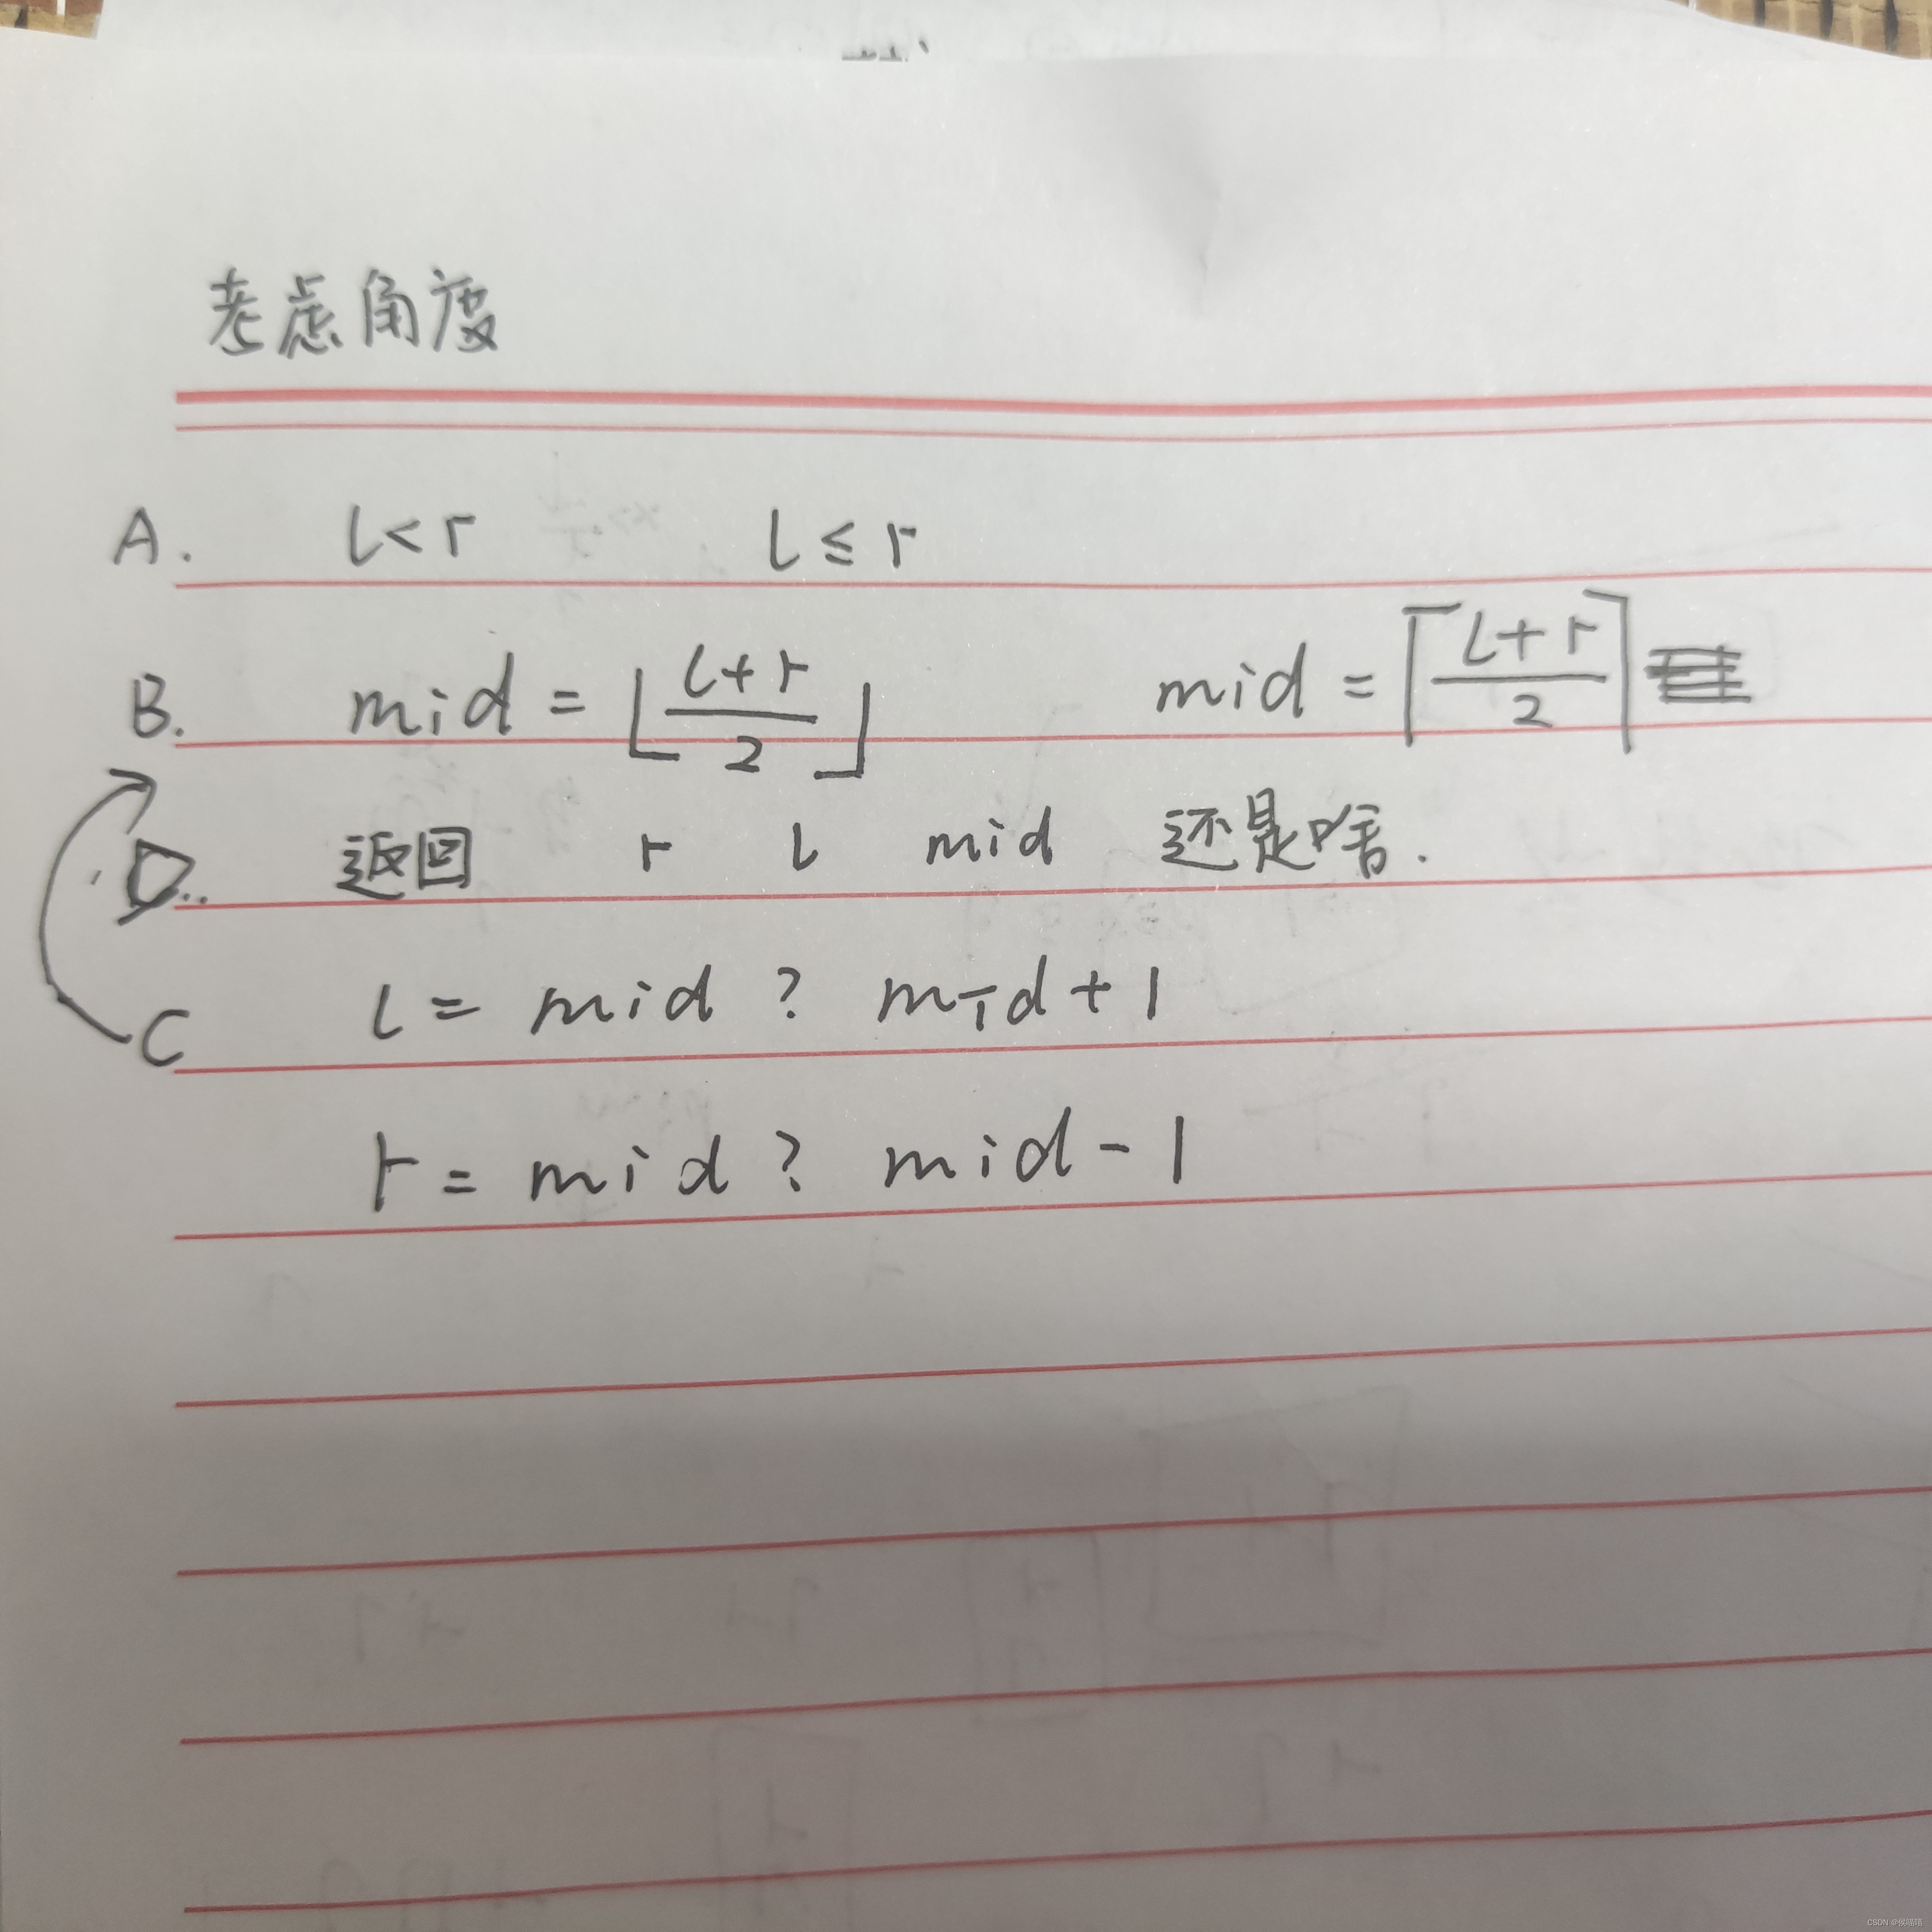 考虑角度
A. l<r l≤r
B. mid = ⌊(l+r)/2⌋ mid = ⌈(l+r)/2⌉
D. 返回 r l mid 还是啥.
C l = mid ? mid+1
r = mid ? mid-1
CSDN @侯喵喵